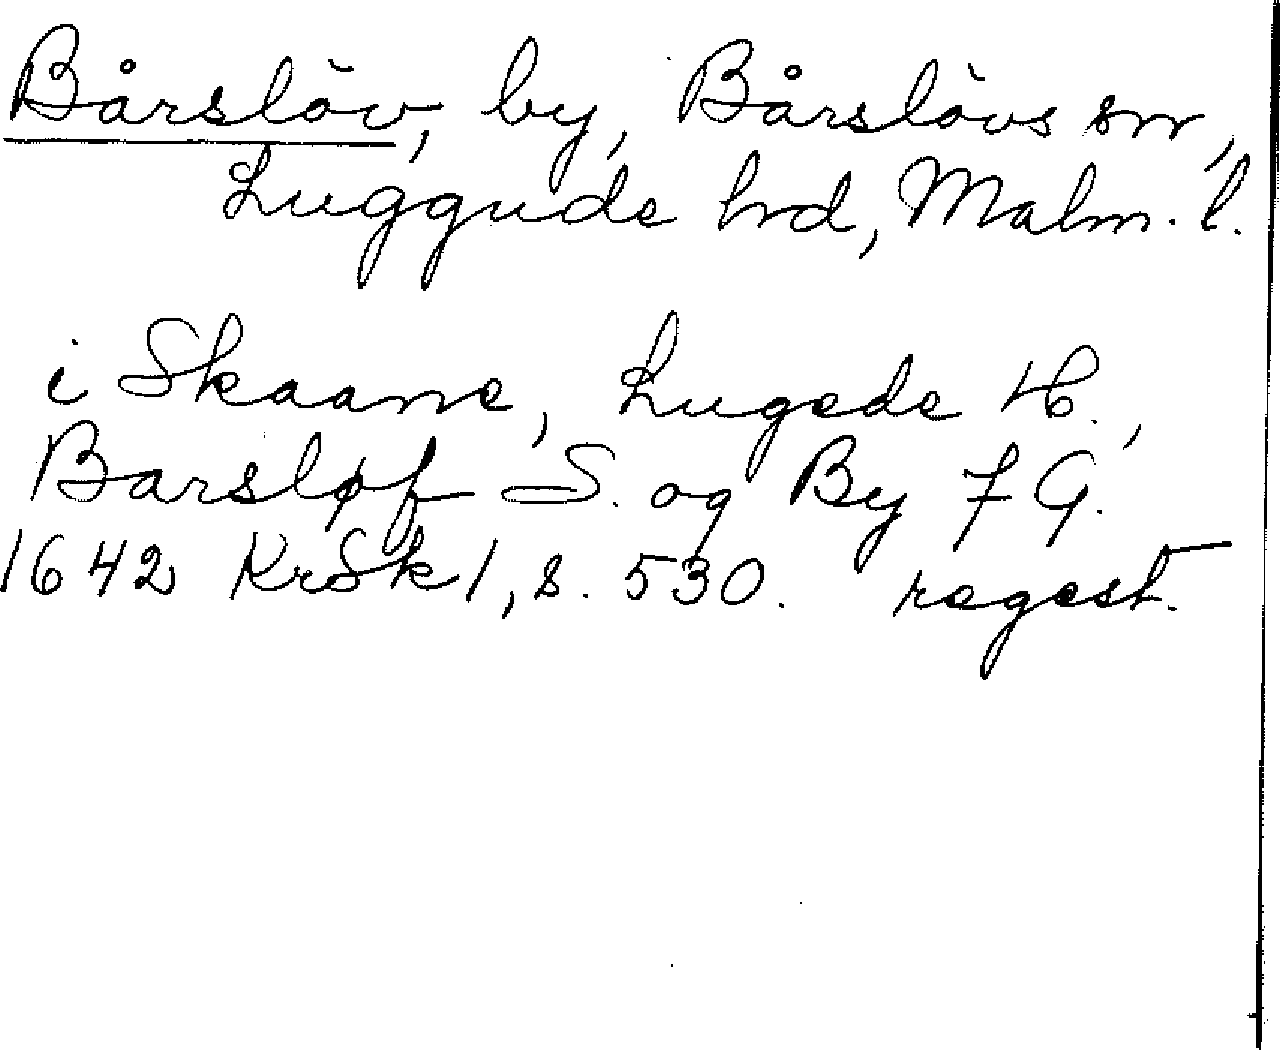 Bårslöv, by, Bårslövs sn,
Luggude hrd, Malm. l.
i Skaane, Lugede H.,
Barsløf S. og By 7 G.
1642 KrSk 1, s. 530. regest.